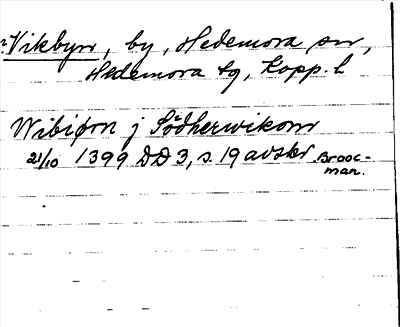 Vikbyn, by, Hedemora sn,
Hedemora tg, Kopp. l
Wibiørn j Södherwikom
21/10 1399 DD 3, s. 19 avskr. Brooc-
man.